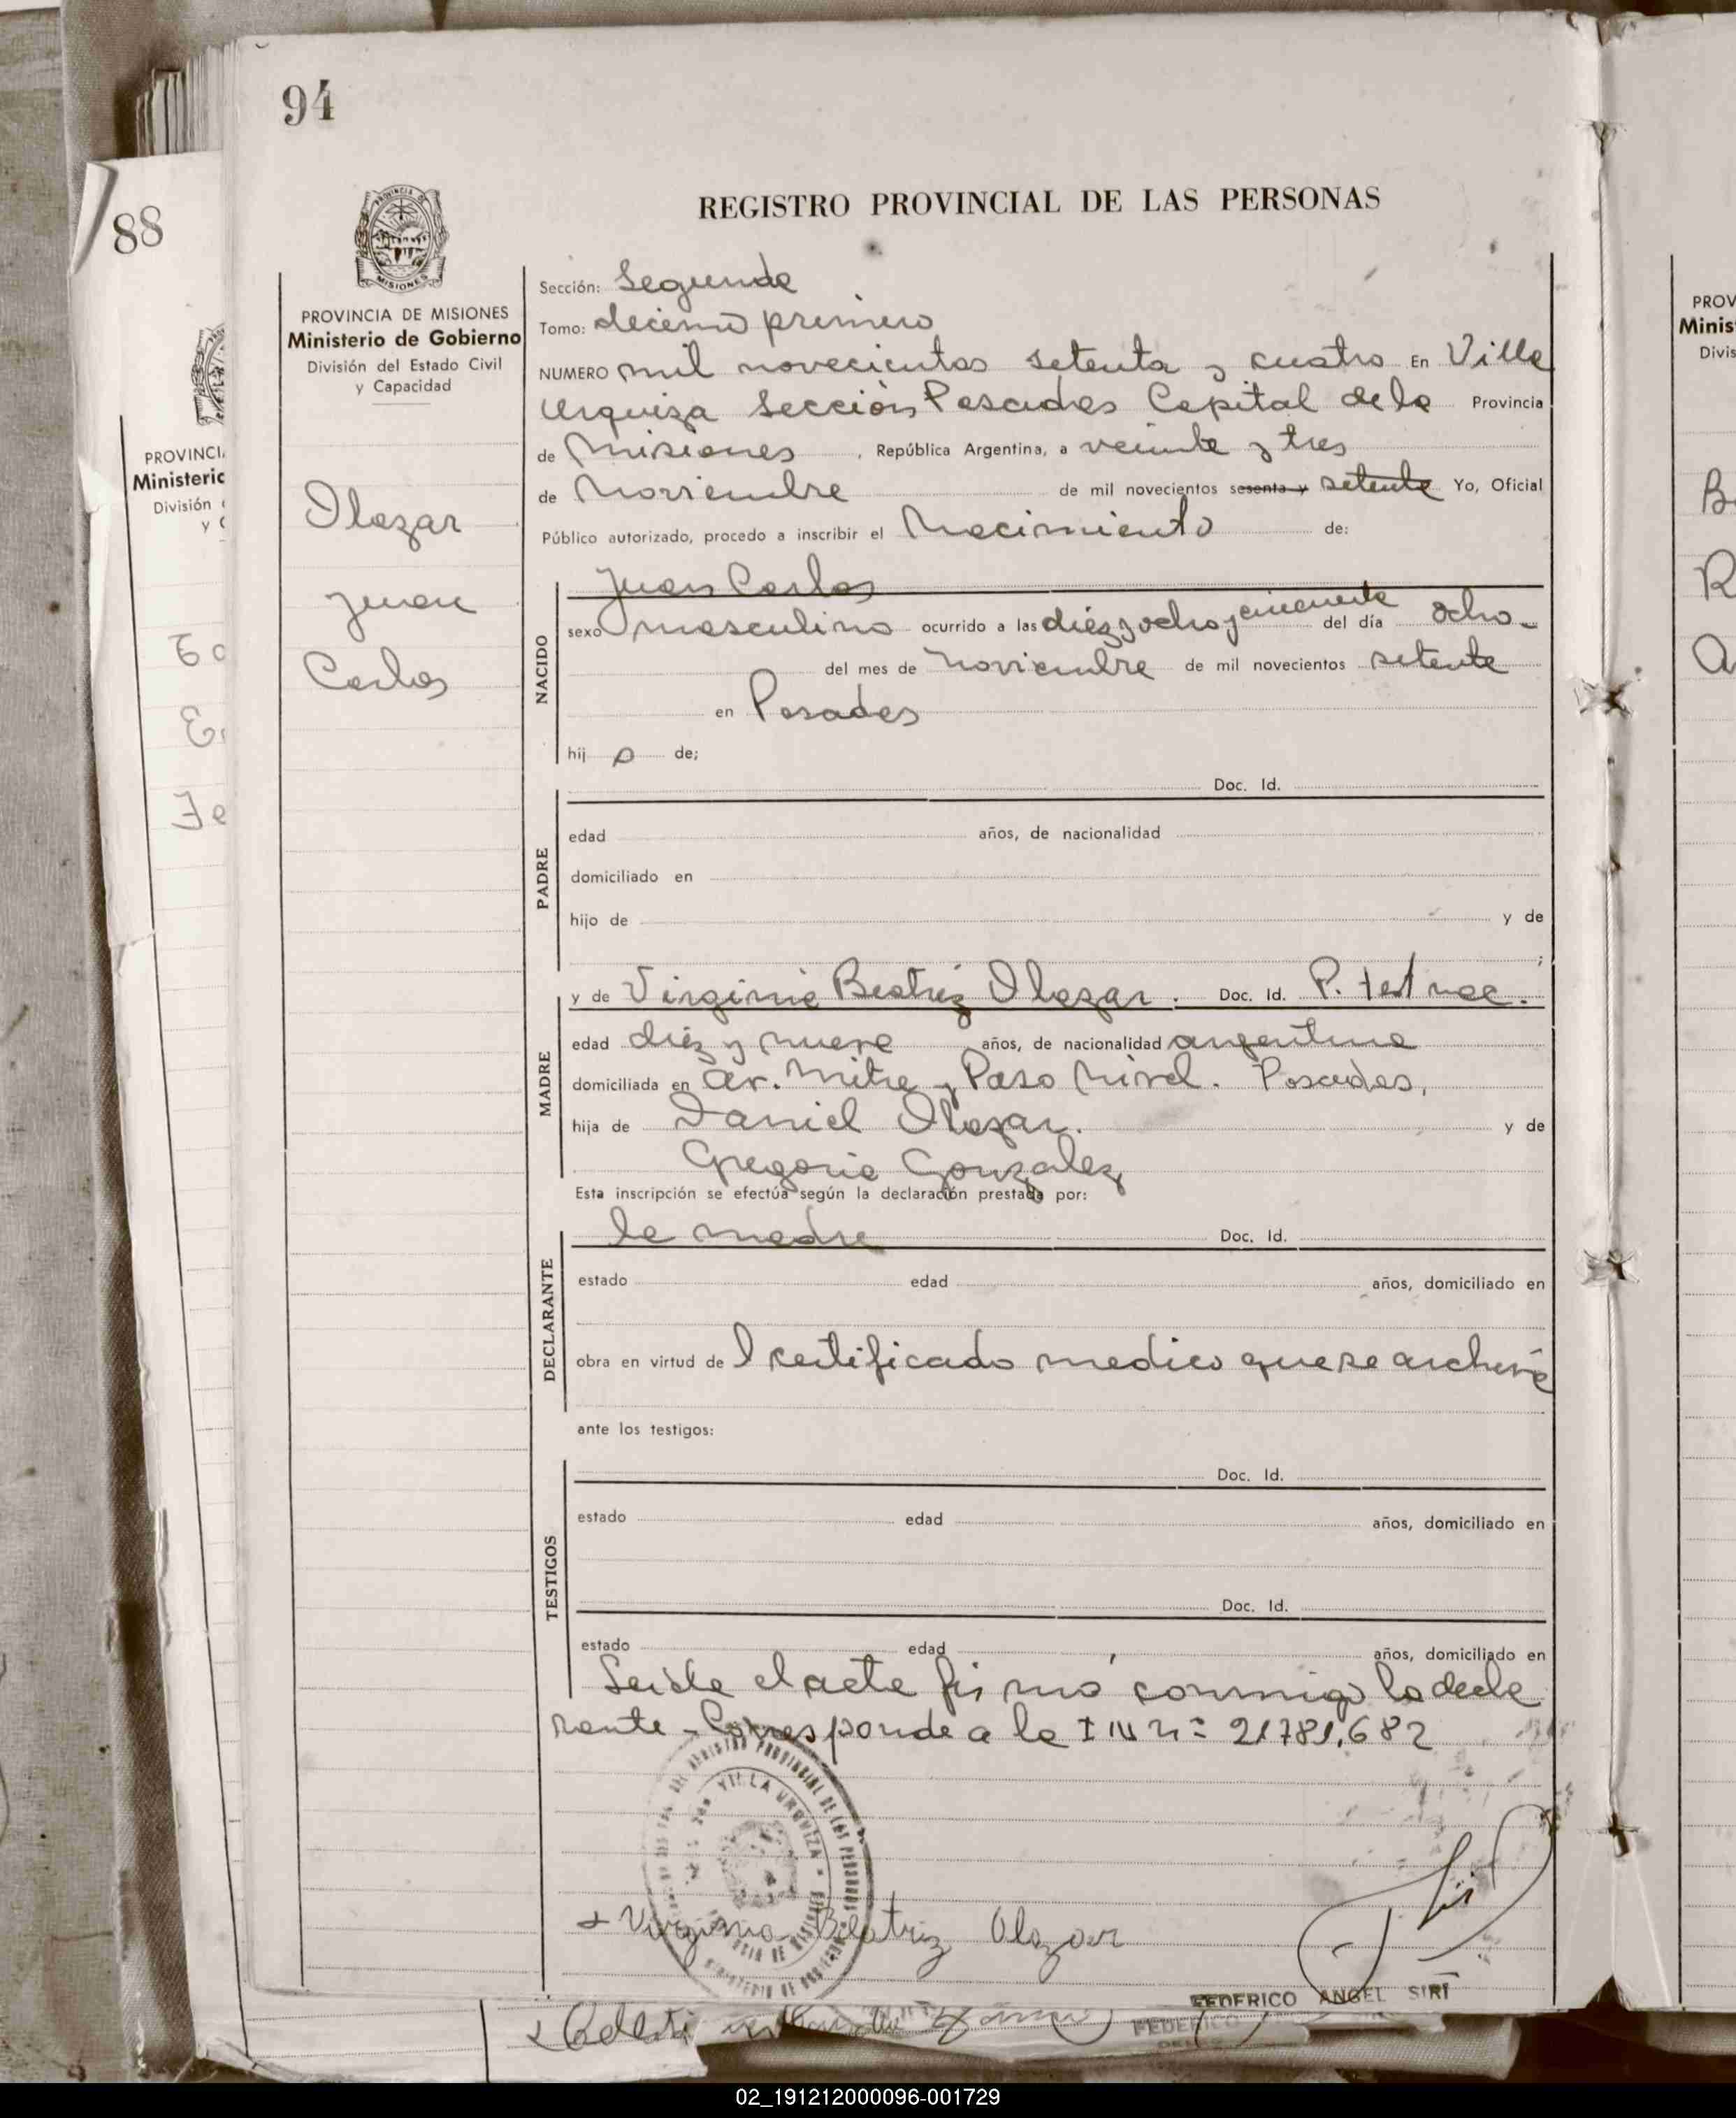 94
88
REGISTRO PROVINCIAL DE LAS PERSONAS
MISIONES
PROVINCIA DE MISIONES
Ministerio de Gobierno
División del Estado Civil
y Capacidad
Olazar
Juan
Carlos
Sección: Segunda
Tomo: decimo primero
NUMERO mil novecientos setenta y cuatro En Villa
Urquiza Sección Posadas Capital de la Provincia
de Misiones , República Argentina, a veinte y tres
de Noviembre de mil novecientos sesenta y setenta Yo, Oficial
Público autorizado, procedo a inscribir el Nacimiento de:
NACIDO
Juan Carlos
sexo masculino ocurrido a las diez y ocho y cincuenta del día ocho-
del mes de noviembre de mil novecientos setenta
en Posadas
hij o de;
PADRE
Doc. Id.
edad años, de nacionalidad
domiciliado en
hijo de y de
;
MADRE
y de Virginia Beatriz Olazar. Doc. Id. P. test nac.
edad diez y nueve años, de nacionalidad argentina
domiciliada en Av. Mitre y Paso Nivel. Posadas,
hija de Daniel Olazar. y de
Gregoria Gonzalez
Esta inscripción se efectúa según la declaración prestada por:
DECLARANTE
la madre Doc. Id.
estado edad años, domiciliado en
obra en virtud de l certificado medico que se archiva
ante los testigos:
TESTIGOS
Doc. Id.
estado edad años, domiciliado en
Doc. Id.
estado edad años, domiciliado en
Leida el acta firmó conmigo la decla
rante - Corresponde a la I N n= 21781.682
VILLA URQUIZA
+ Virginia Beatriz Olazar
FEDERICO ANGEL SIRI
FEDERICO
PROVINCI
Ministeric
División
PROV
Minis
Divis
02_191212000096-001729